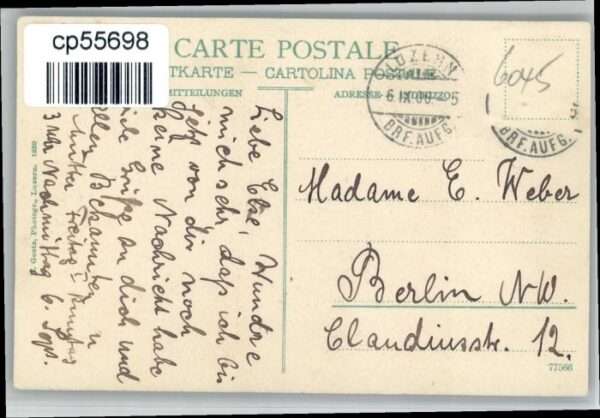 cp55698
CARTE POSTALE
TKARTE – CARTOLINA POSTALE
MITTEILUNGEN
ADRESSE
LUZERN
6.IX.06 - 5
BRF. AUFG.
BRF. AUFG.
6045
Liebe Else, Wundre
mich sehr, dass ich bis
jetz von dir noch
keine Nachricht habe
viele Grüße an dich und
alle Bekannten u
Freitag
3 Uhr Nachmittag 6. Sept.
Madame E. Weber
Berlin NW.
Claudiusstr. 12.
77566